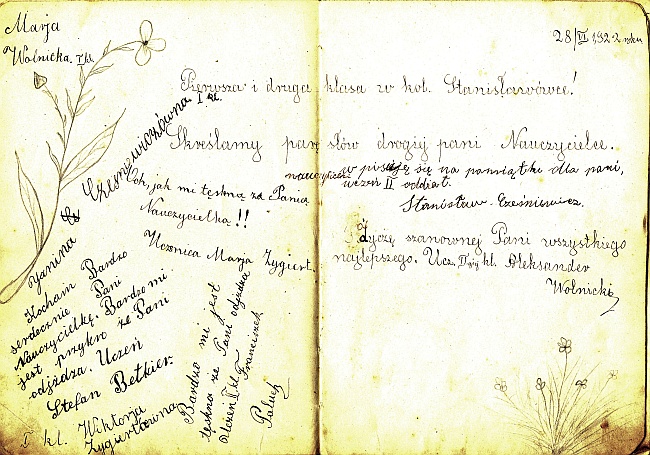 Marja
Wolnicka. I kl.
28/VI 1922 roku
Pierwsza i druga klasa w kol. Stanisławówce!
Skreślamy parę słów drogiej pani Nauczycielce.
Janina Cześniewiczówna I kl.
Och, jak mi tęskno za Panią
Nauczycielką!!
Uczenica Marja Zygiert.
nauczycielki
w pisuję się na pamiątkę dla pani,
uczeń II oddział.
Stanisław Cześniewicz.
Życzę szanownej Pani wszystkiego
najlepszego. Ucz. II kl. Aleksander
Wolnicki
Kocham Bardzo
serdecznie Pani
Nauczycielkę. Bardzo mi
jest przykro że Pani
odjżdża. Uczeń
Stefan Betkier.
I kl. Wiktorja
Zygartówna
Bardzo mi jest
tęskno że Pani odjżdża
Uczeń I kl. Franciszek
Paluch